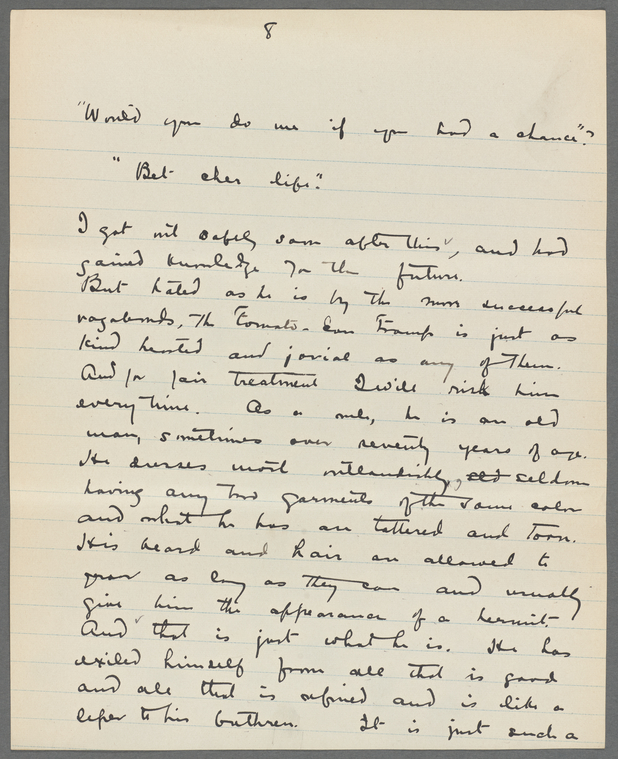 8
"Would you do me if you had a chance"?
"Bet cher life".
I got out safely soon after this, and had
gained knowledge for the future.
But hated as he is by the more successful
vagabonds, the Tomato-Can Tramp is just as
kind hearted and jovial as any of them.
And for fair treatment I will risk him
everytime. As a rule, he is an old
man, sometimes over seventy years of age.
He dresses most outlandishly, seldom
having any two garments of the same color
and what he has are tattered and torn.
His beard and hair are allowed to
grow as long as they can and usually
give him the appearance of a hermit.
And that is just what he is. He has
exiled himself from all that is good
and all that is refined and is like a
leper to his brethren. It is just such a